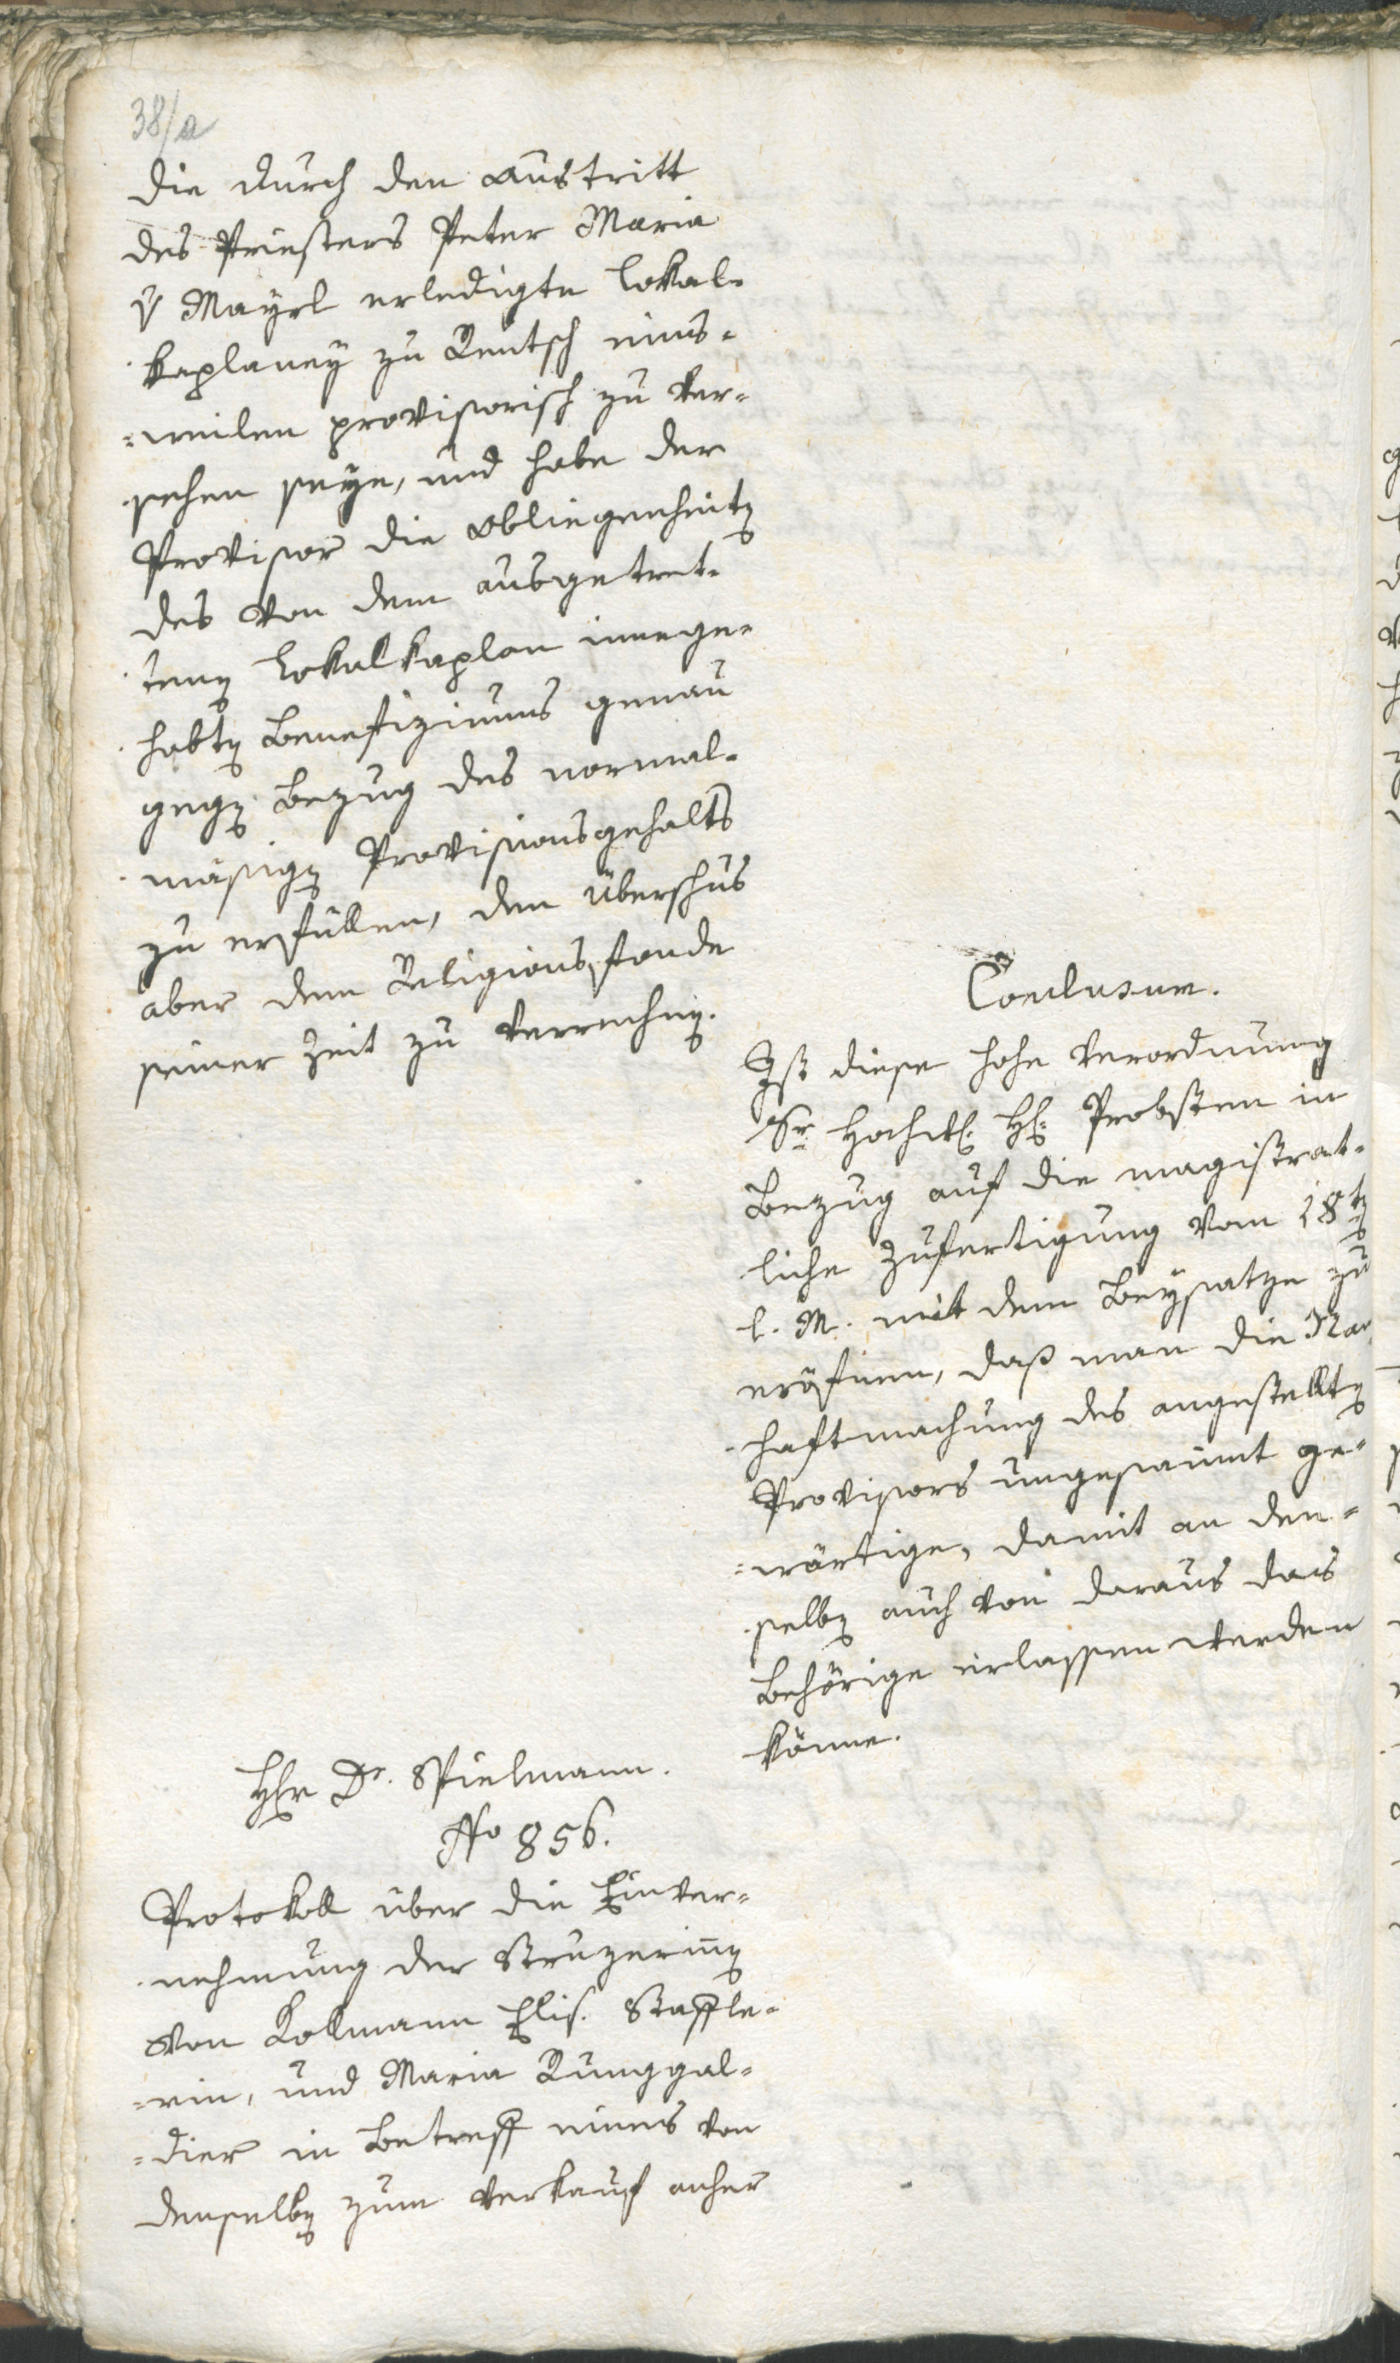 38/a
die durch den Austritt
des Priesters Peter Maria
v Mayrl erledigte Lokal-
kaplaney zu Rentsch eins-
=weilen provisorisch zu ver-
sehen seye, und habe der
Provisor die Obliegenheitn
des von dem ausgetret-
tenen Lokalkaplan innege-
habtn Benefiziums genau
gegn Bezug des normal-
mäsign Provisionsgehalts
zu erfüllen, den Überschus
aber dem Religionsfonde
seiner Zeit zu verrechnn.
Conclusum.
Ist diese hohe Verordnung
Sr Hochw. H: Probsten in
Bezug auf die magistrat-
liche Zufertigung vom 18tn
l. M. mit dem Beysatze zu
eröfnen, daß man die Nam
haftmachung des angestelltn
Provisors ungesäumt ge-
=wärtige, damit an den-
selbn auch von daraus das
Behörige erlassen werden
könne.
Hr Dr. Spielmann.
No 856.
Protokoll über die Einver-
nehmung der Strazerinn
von Kollmann Elis. Staffle-
=rin, und Maria Runggal-
=dier in Betreff eines von
denselbn zum Verkauf anher